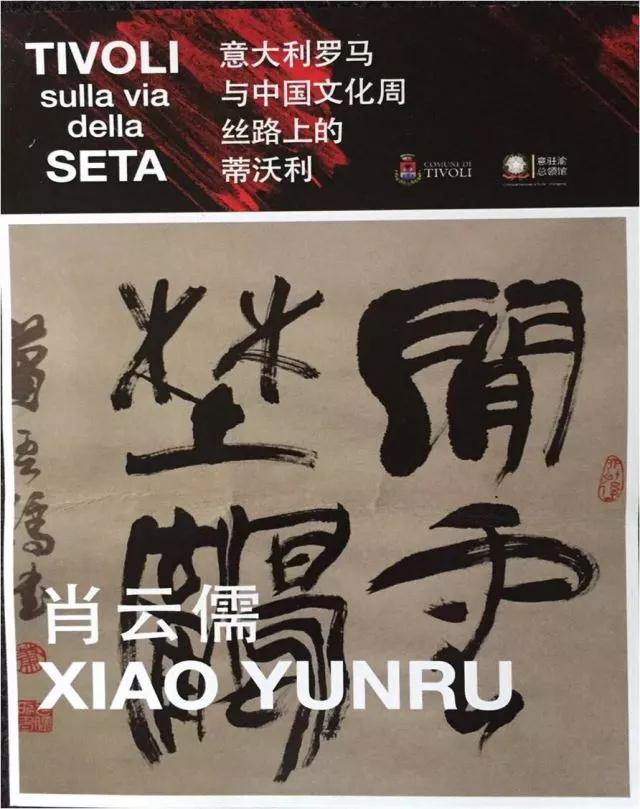 TIVOLI
sulla via
della
SETA
意大利罗马
与中国文化周
丝路上的
蒂沃利
COMUNE DI
TIVOLI
意驻渝
总领馆
閒云
埜鶴
肖云儒
XIAO YUNRU